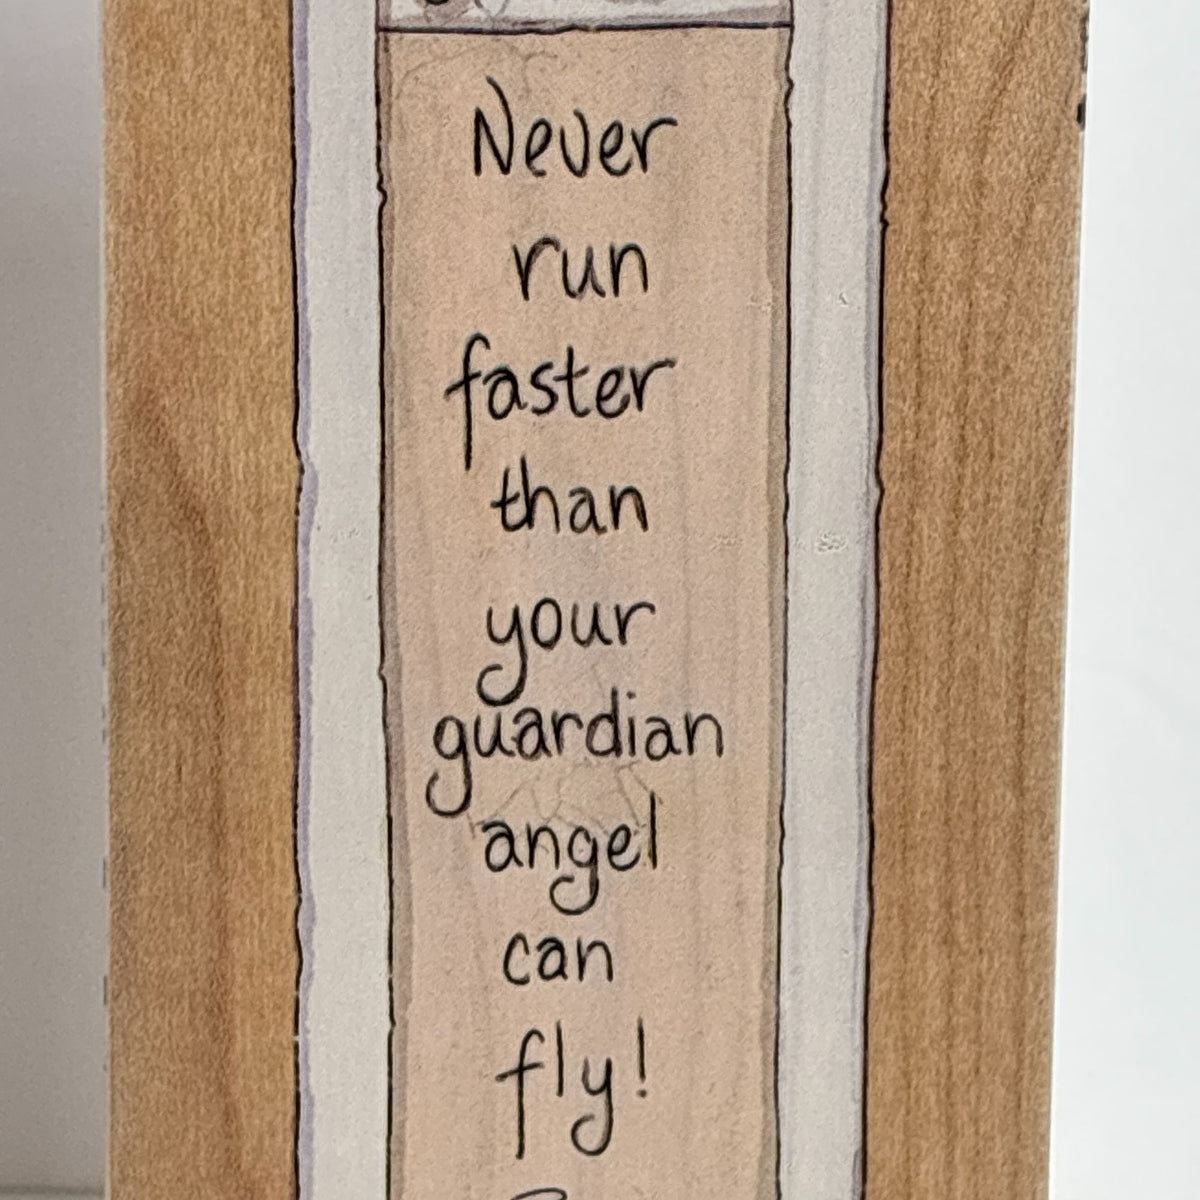 Never
run
faster
than
your
guardian
angel
can
fly!